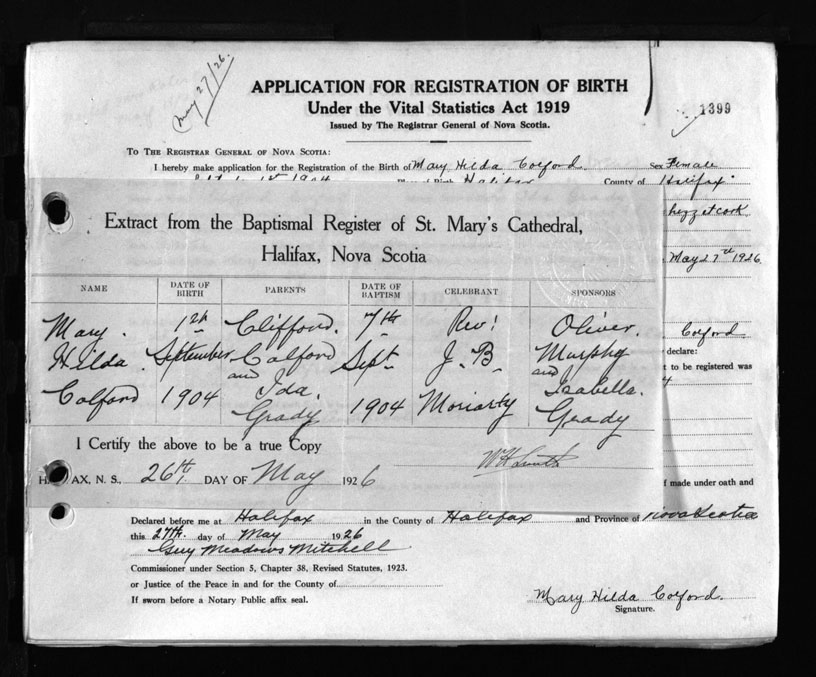 May 27/26.
APPLICATION FOR REGISTRATION OF BIRTH
Under the Vital Statistics Act 1919
Issued by The Registrar General of Nova Scotia.
1399
To The Registrar General of Nova Scotia:
I hereby make application for the Registration of the Birth of Mary Hilda Colford Sex Female
1st 1904 Halifax County of Halifax
Extract from the Baptismal Register of St. Mary's Cathedral,
Halifax, Nova Scotia
May 27th 1926
NAME DATE OF BIRTH PARENTS DATE OF BAPTISM CELEBRANT SPONSORS
Mary. 1st Clifford. 7th Rev! Oliver. Colford
Hilda. September Colford Sept J. B. Murphy declare:
and and
t to be registered was
Colford 1904 Ida. 1904 Moriarty Isabella. 4
Grady Grady
I Certify the above to be a true Copy
AX, N. S., 26th. DAY OF May 1926
f made under oath and
Declared before me at Halifax in the County of Halifax and Province of Nova Scotia
this 27th. day of May 1926
Guy Meadows Mitchell
Commissioner under Section 5, Chapter 38, Revised Statutes, 1923.
or Justice of the Peace in and for the County of
If sworn before a Notary Public affix seal.
Mary Hilda Colford.
Signature.